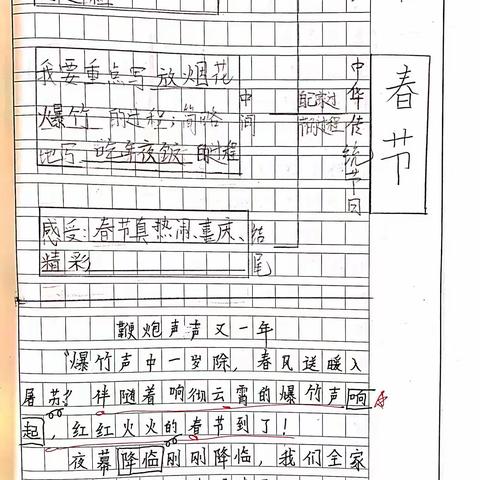 我要重点写放烟花
爆竹的过程；简略
地写 年夜饭 的过程
中间
中华传统节日
春节
感受：春节真热闹、喜庆、
精彩
结尾
鞭炮声声又一年
“爆竹声中一岁除，春风送暖入
屠苏”伴随着响彻云霄的爆竹声响
起，红红火火的春节到了！
夜幕降临刚刚降临，我们全家